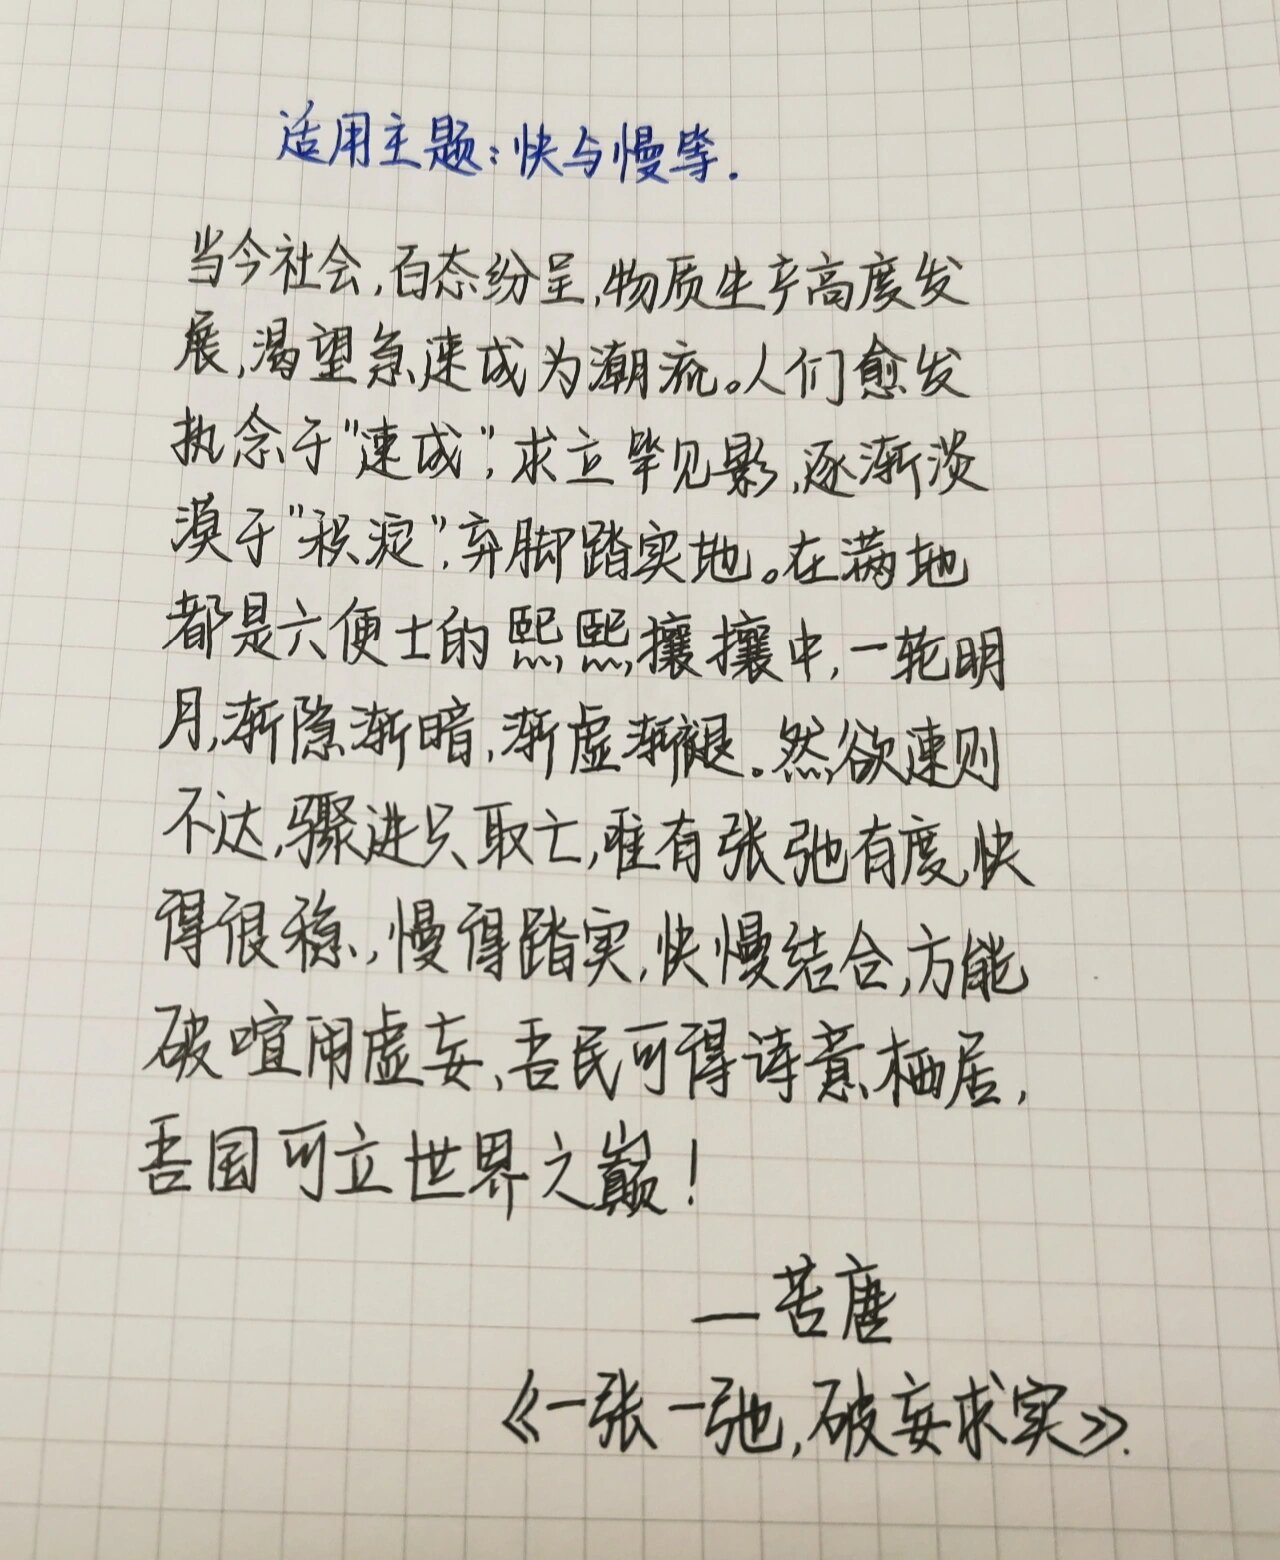 适用主题:快与慢等.
当今社会,百态纷呈,物质生产高度发
展,渴望急速成为潮流。人们愈发
执念于"速成",求立竿见影,逐渐淡
漠于"积淀",弃脚踏实地。在满地
都是六便士的熙熙攘攘中,一轮明
月,渐隐渐暗,渐虚渐褪。然欲速则
不达,骤进只取亡,唯有张弛有度,快
得很稳,慢得踏实,快慢结合,方能
破喧闹虚妄,吾民可得诗意栖居,
吾国可立世界之巅!
—苦塵
《一张一弛,破妄求实》.